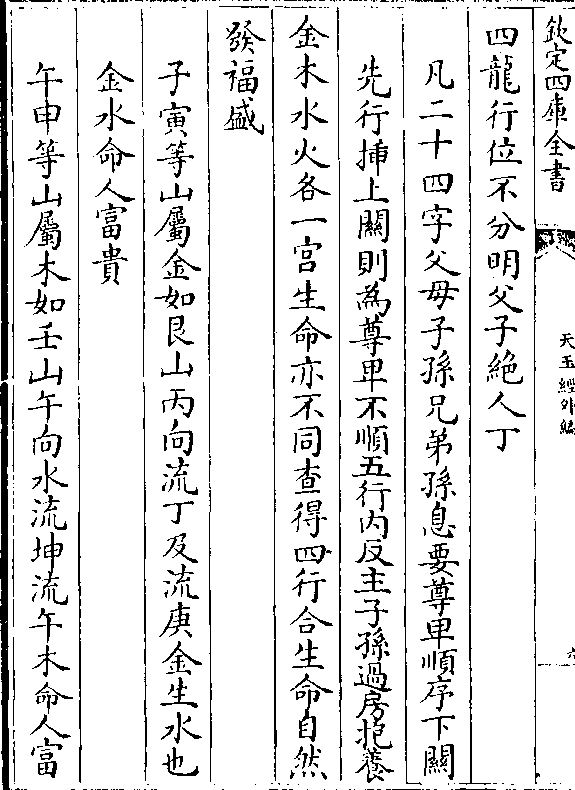 欽定四庫全書
天玉經外編
六
四龍行位不分明父子絶人丁
凡二十四字父母子孫兄弟孫息要尊卑順序下關
先行揷上關則為尊卑不順五行内反主子孫過房抱養
金木水火各一宫生命亦不同查得四行合生命自然
發福盛
子寅等山屬金如艮山丙向流丁及流庚金生水也
金水命人富貴
午申等山屬木如壬山午向水流坤流午木命人富